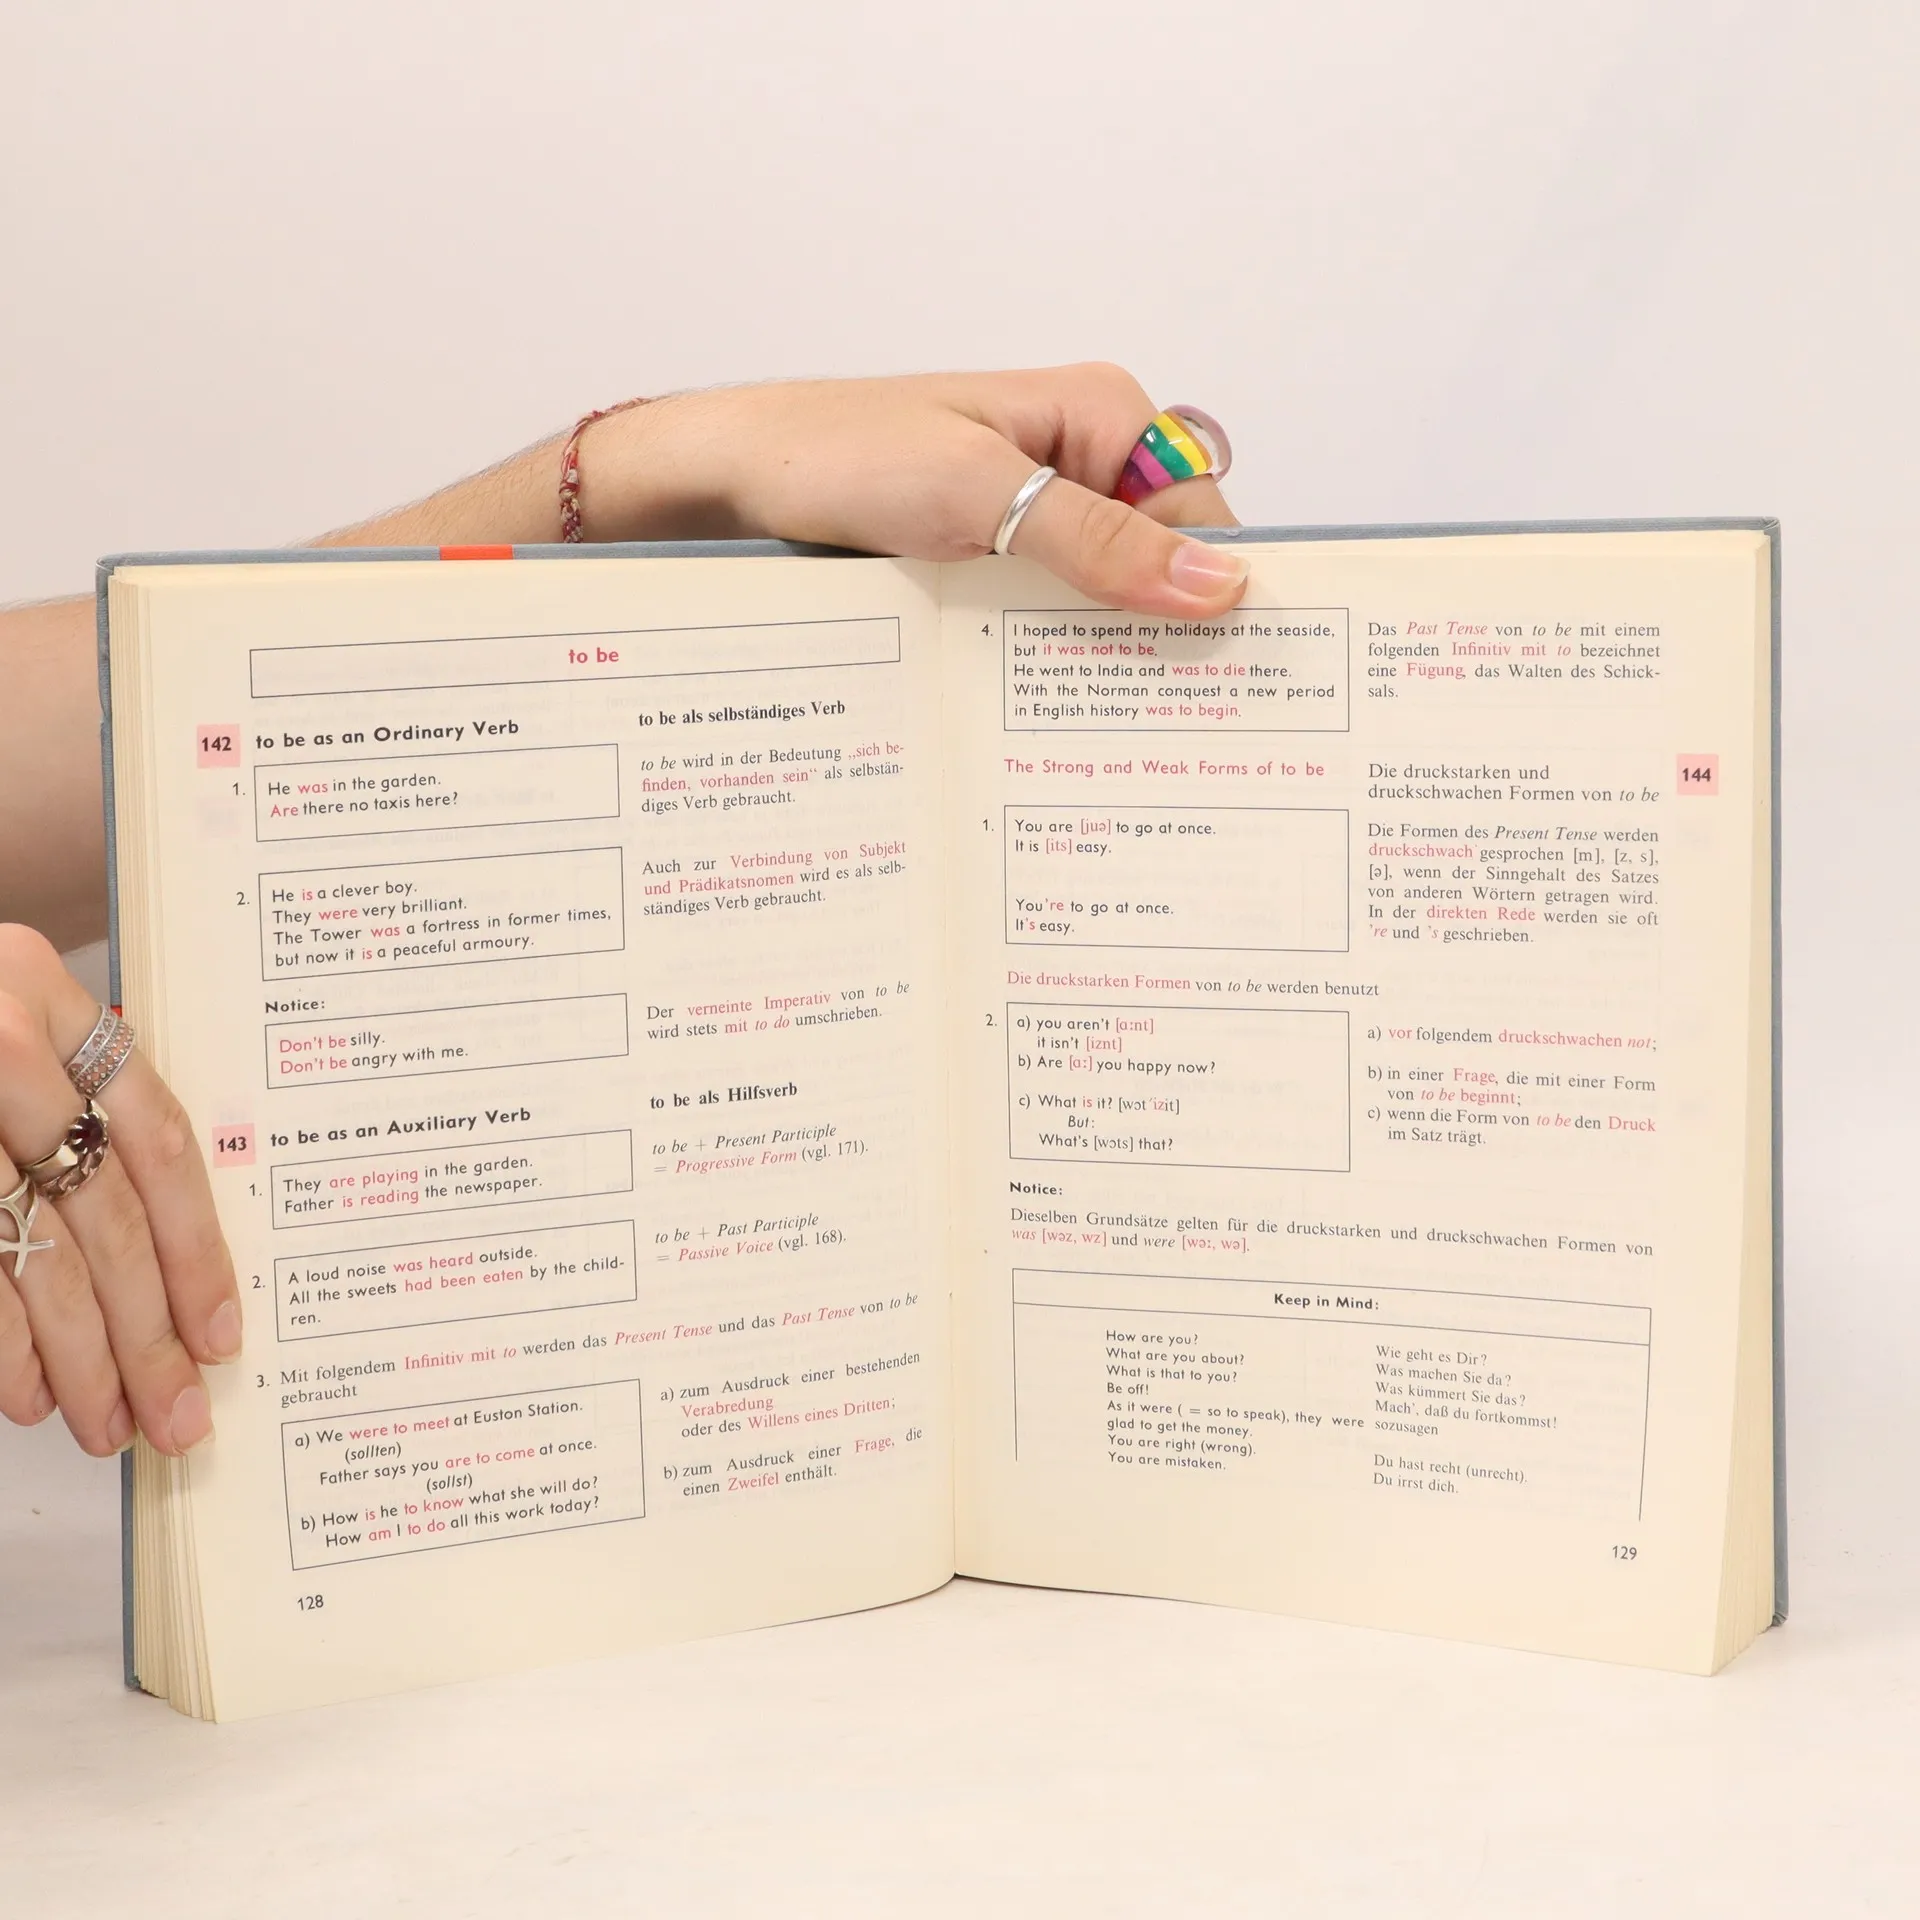 to be
142 to be as an Ordinary Verb
to be als selbständiges Verb
1. He was in the garden.
Are there no taxis here?
to be wird in der Bedeutung „sich be-
finden, vorhanden sein“ als selbstän-
diges Verb gebraucht.
2. He is a clever boy.
They were very brilliant.
The Tower was a fortress in former times,
but now it is a peaceful armoury.
Auch zur Verbindung von Subjekt
und Prädikatsnomen wird es als selb-
ständiges Verb gebraucht.
Notice:
Don't be silly.
Don't be angry with me.
Der verneinte Imperativ von to be
wird stets mit to do umschrieben.
143 to be as an Auxiliary Verb
to be als Hilfsverb
1. They are playing in the garden.
Father is reading the newspaper.
to be + Present Participle
= Progressive Form (vgl. 171).
2. A loud noise was heard outside.
All the sweets had been eaten by the child-
ren.
to be + Past Participle
= Passive Voice (vgl. 168).
3. Mit folgendem Infinitiv mit to werden das Present Tense und das Past Tense von to be
gebraucht
a) We were to meet at Euston Station.
(sollten)
Father says you are to come at once.
(sollst)
b) How is he to know what she will do?
How am I to do all this work today?
a) zum Ausdruck einer bestehenden
Verabredung
oder des Willens eines Dritten;
b) zum Ausdruck einer Frage, die
einen Zweifel enthält.
128
4. I hoped to spend my holidays at the seaside,
but it was not to be.
He went to India and was to die there.
With the Norman conquest a new period
in English history was to begin.
Das Past Tense von to be mit einem
folgenden Infinitiv mit to bezeichnet
eine Fügung, das Walten des Schick-
sals.
The Strong and Weak Forms of to be
Die druckstarken und
druckschwachen Formen von to be
144
1. You are [juə] to go at once.
It is [its] easy.
You're to go at once.
It's easy.
Die Formen des Present Tense werden
druckschwach gesprochen [m], [z, s],
[ə], wenn der Sinngehalt des Satzes
von anderen Wörtern getragen wird.
In der direkten Rede werden sie oft
're und 's geschrieben.
Die druckstarken Formen von to be werden benutzt
2. a) you aren't [ɑ:nt]
it isn't [iznt]
b) Are [ɑ:] you happy now?
c) What is it? [wɔt ́izit]
But:
What's [wɔts] that?
a) vor folgendem druckschwachen not;
b) in einer Frage, die mit einer Form
von to be beginnt;
c) wenn die Form von to be den Druck
im Satz trägt.
Notice:
Dieselben Grundsätze gelten für die druckstarken und druckschwachen Formen von
was [wəz, wz] und were [wə:, wə].
Keep in Mind:
How are you?
What are you about?
What is that to you?
Be off!
As it were ( = so to speak), they were
glad to get the money.
You are right (wrong).
You are mistaken.
Wie geht es Dir?
Was machen Sie da?
Was kümmert Sie das?
Mach', daß du fortkommst!
sozusagen
Du hast recht (unrecht).
Du irrst dich.
129